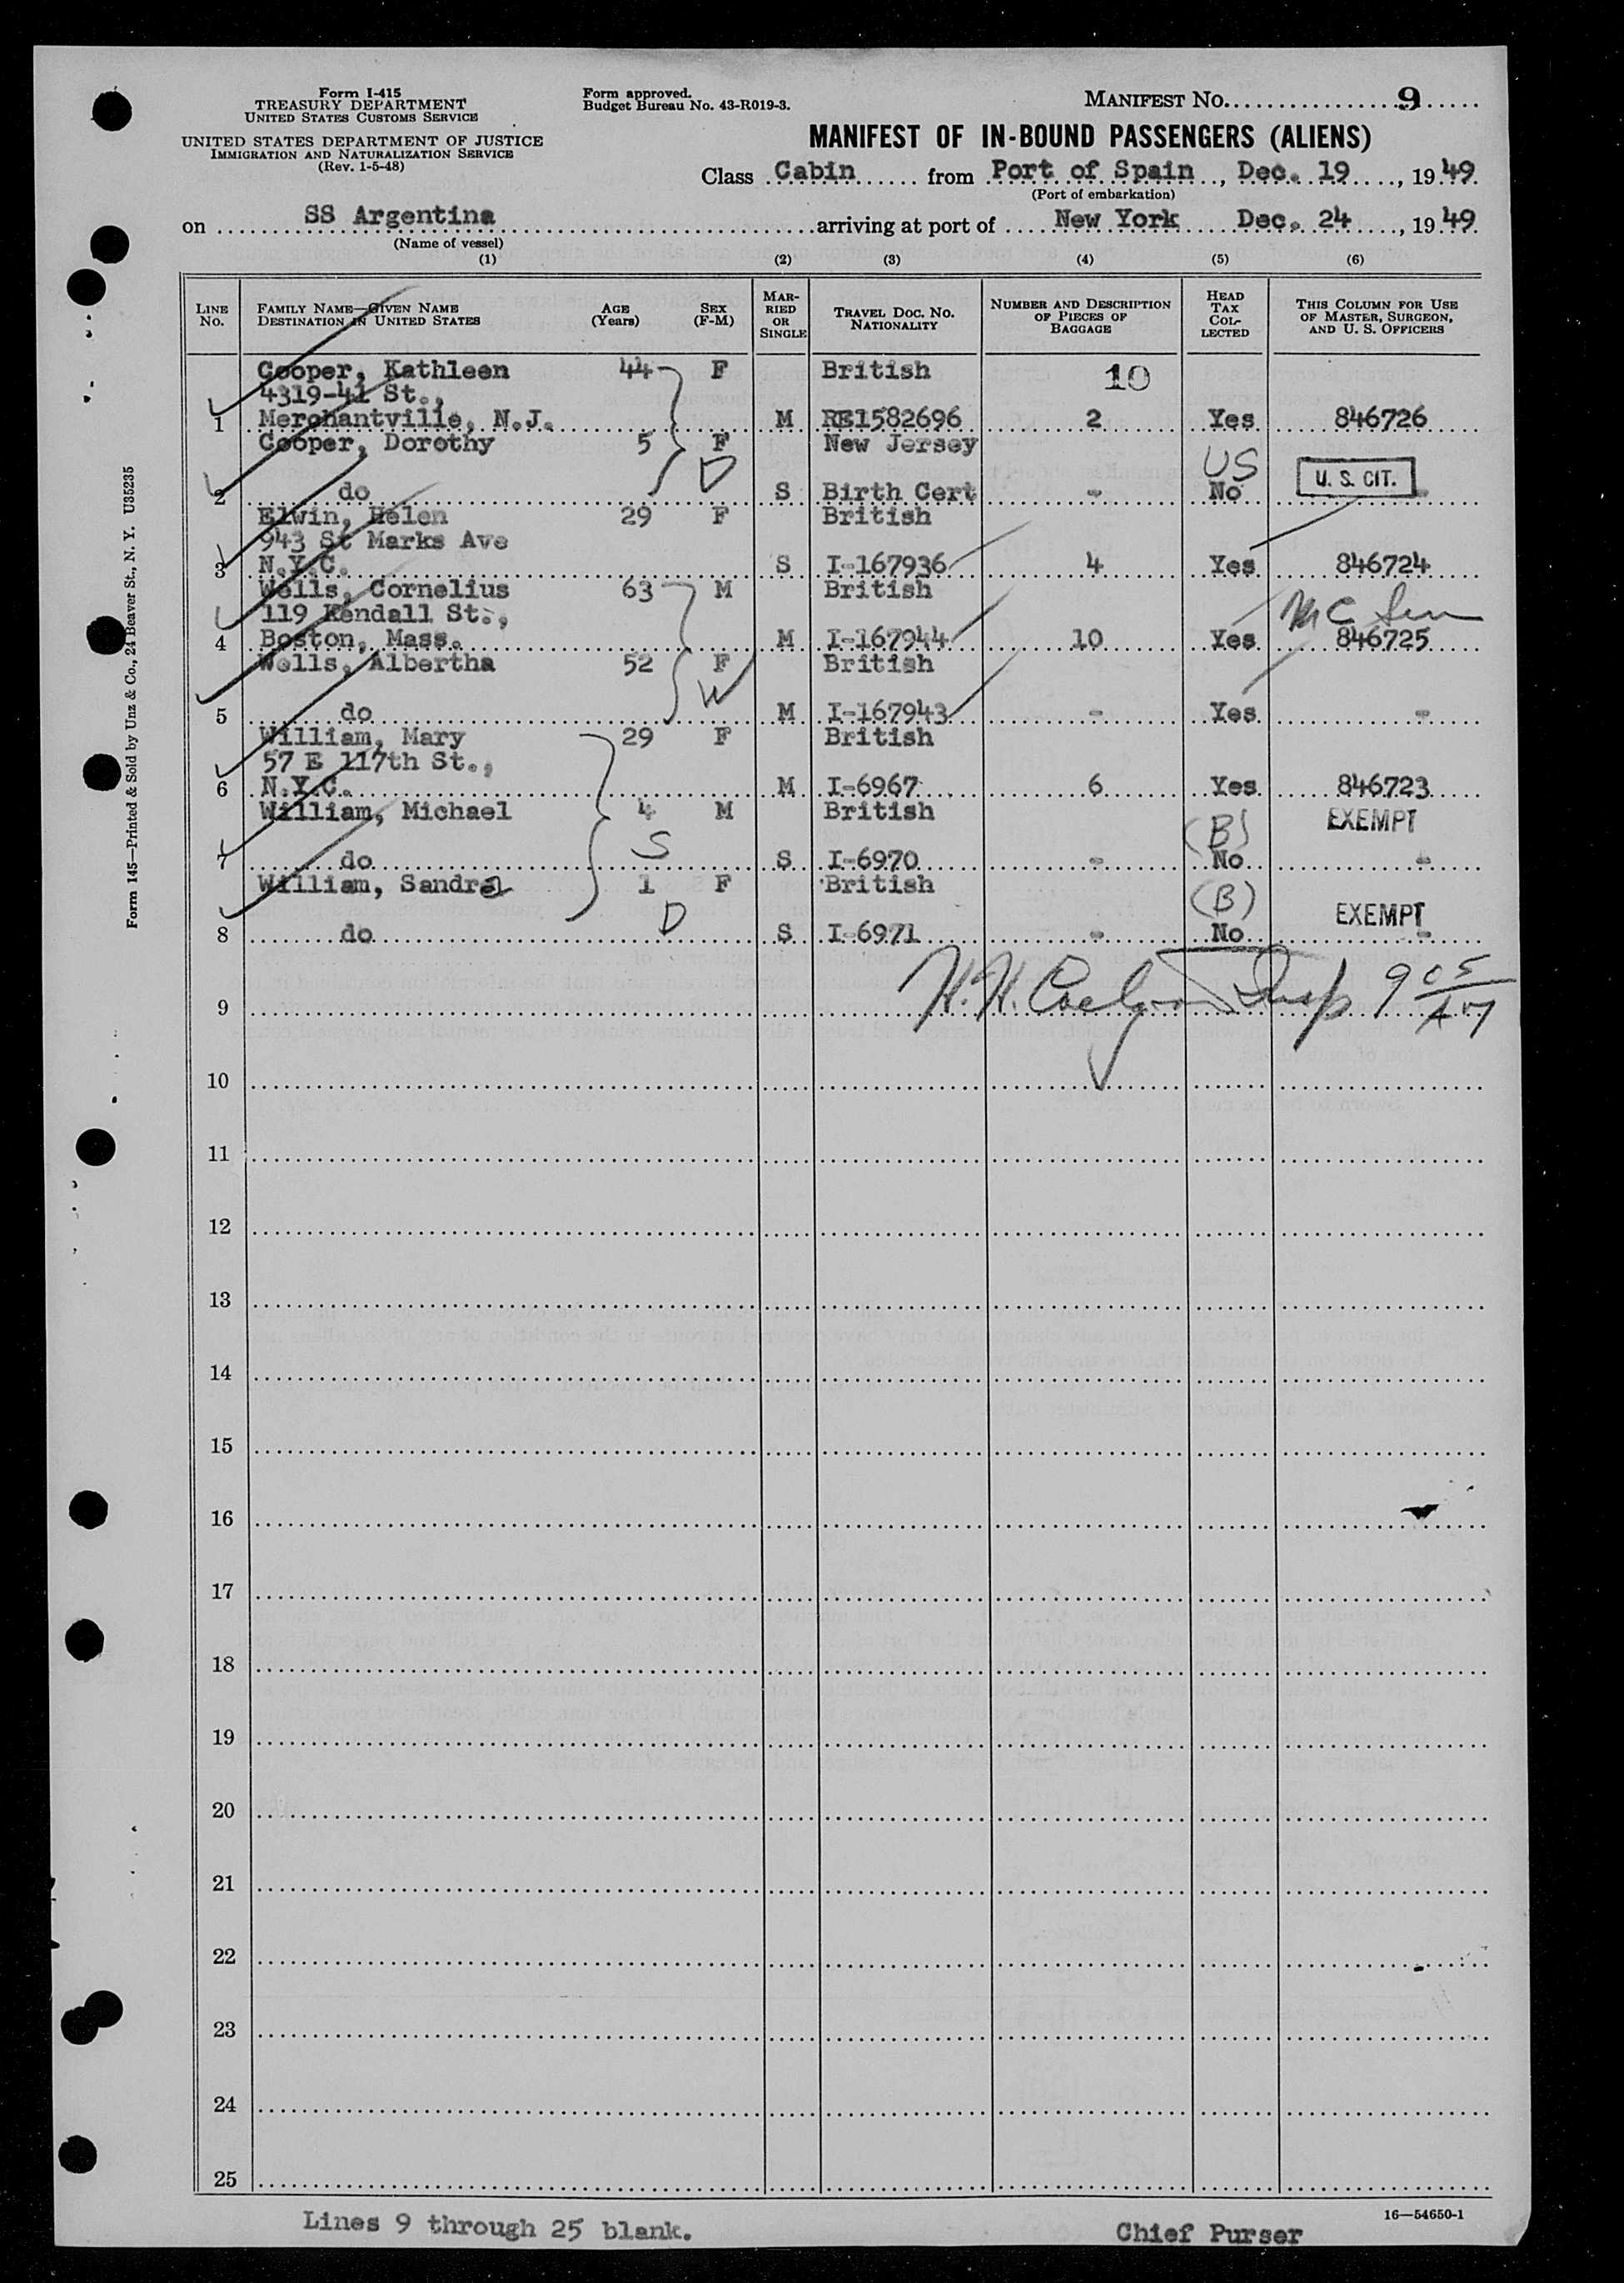 Form I-415
TREASURY DEPARTMENT
UNITED STATES CUSTOMS SERVICE
UNITED STATES DEPARTMENT OF JUSTICE
IMMIGRATION AND NATURALIZATION SERVICE
(Rev. 1-5-48)
Form approved.
Budget Bureau No. 43-R019-3.
MANIFEST NO. 9
MANIFEST OF IN-BOUND PASSENGERS (ALIENS)
Class Cabin from Port of Spain, Dec. 19, 1949
(Port of embarkation)
on SS Argentina arriving at port of New York Dec. 24, 1949
(Name of vessel)
(1) (2) (3) (4) (5) (6)
LINE NO. FAMILY NAME—GIVEN NAME DESTINATION IN UNITED STATES AGE (Years) SEX (F-M) MARRIED OR SINGLE TRAVEL DOC. NO. NATIONALITY NUMBER AND DESCRIPTION OF PIECES OF BAGGAGE HEAD TAX COLLECTED THIS COLUMN FOR USE OF MASTER, SURGEON, AND U. S. OFFICERS
Cooper, Kathleen 44 F British 10
4319-41 St.,
1 Merchantville, N.J. M RE1582696 2 Yes 846726
Cooper, Dorothy 5 F New Jersey
D US U. S. CIT.
2 do S Birth Cert - No -
Elwin, Helen 29 F British
943 St Marks Ave
3 N.Y.C. S I-167936 4 Yes 846724
Wells, Cornelius 63 M British
119 Kendall St.,
4 Boston, Mass. M I-167944 10 Yes 846725
Wells, Albertha 52 F British
W
5 do M I-167943 - Yes -
William, Mary 29 F British
57 E 117th St.,
6 N.Y.C. M I-6967 6 Yes 846723
William, Michael 4 M British EXEMPT
S (B)
7 do S I-6970 - No -
William, Sandra 1 F British
D (B) EXEMPT
8 do S I-6971 - No -
9 H. H. Insp 9 05 AM
10
11
12
13
14
15
16
17
18
19
20
21
22
23
24
25
16—54650-1
Lines 9 through 25 blank. Chief Purser
Form 145—Printed & Sold by Unz & Co., 24 Beaver St., N. Y. U35235